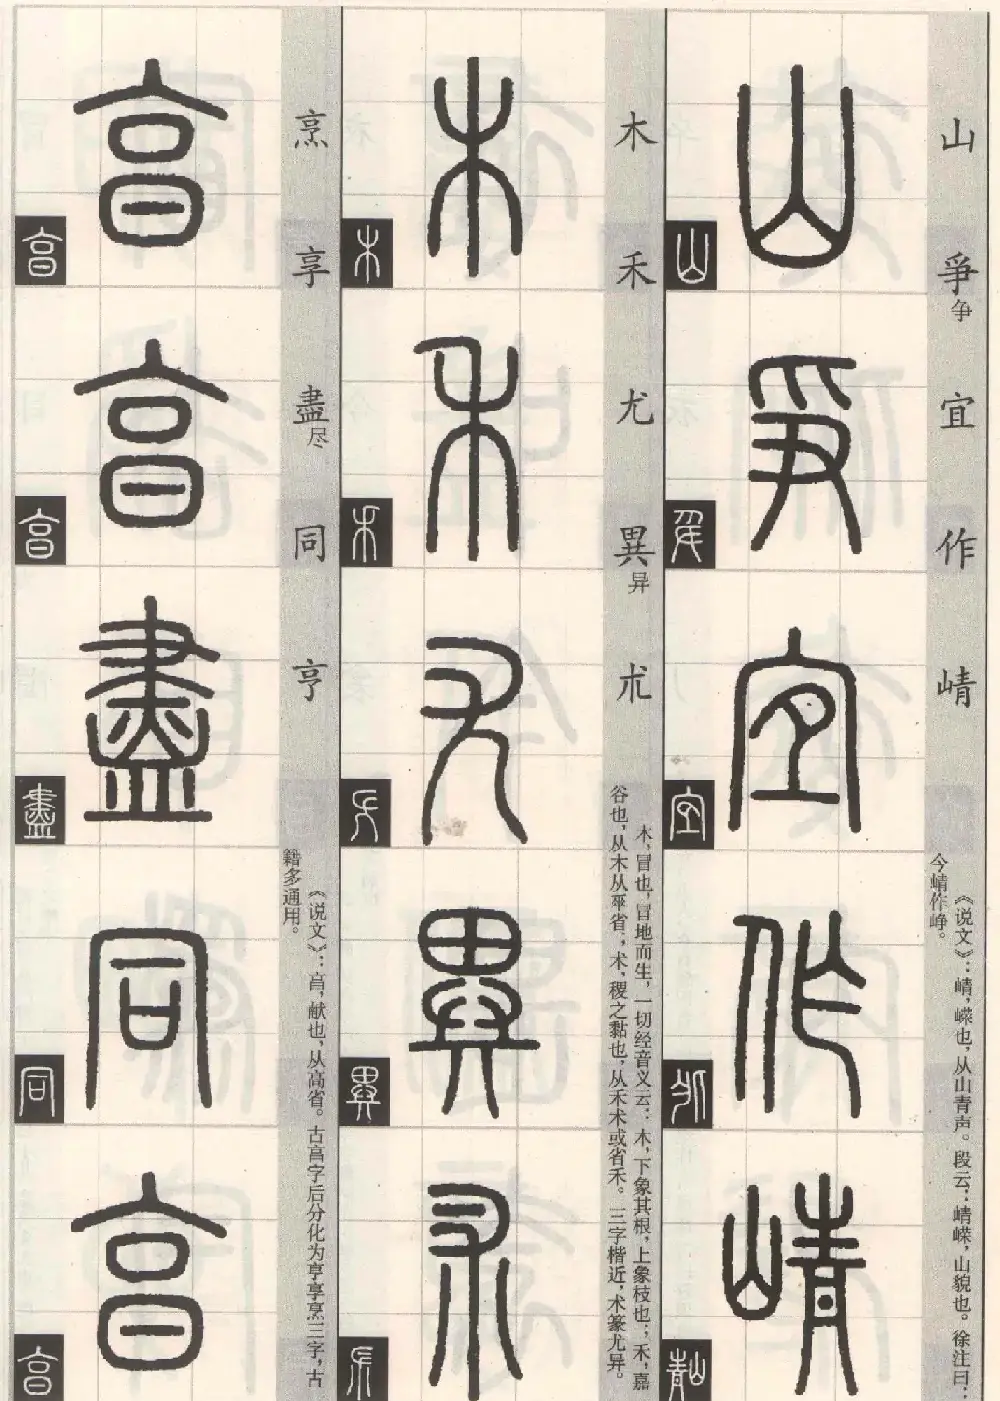 山爭争宜作崝
《说文》：崝，嵘也，从山青声。段云：崝嵘，山貌也。徐注曰：
今崝作峥。
木禾尤異异朮
木，冒也，冒地而生，一切经音义云：木，下象其根，上象枝也；禾，嘉
谷也，从木从𠂹省，；术，稷之黏也，从禾术或省禾。三字楷近，术篆尤异。
烹享盡尽同亨
《说文》：亯，献也，从高省。古亯字后分化为亨享烹三字，古
籍多通用。
山
爭
宜
作
崝
木
禾
尤
異
朮
亯
亯
盡
同
亯